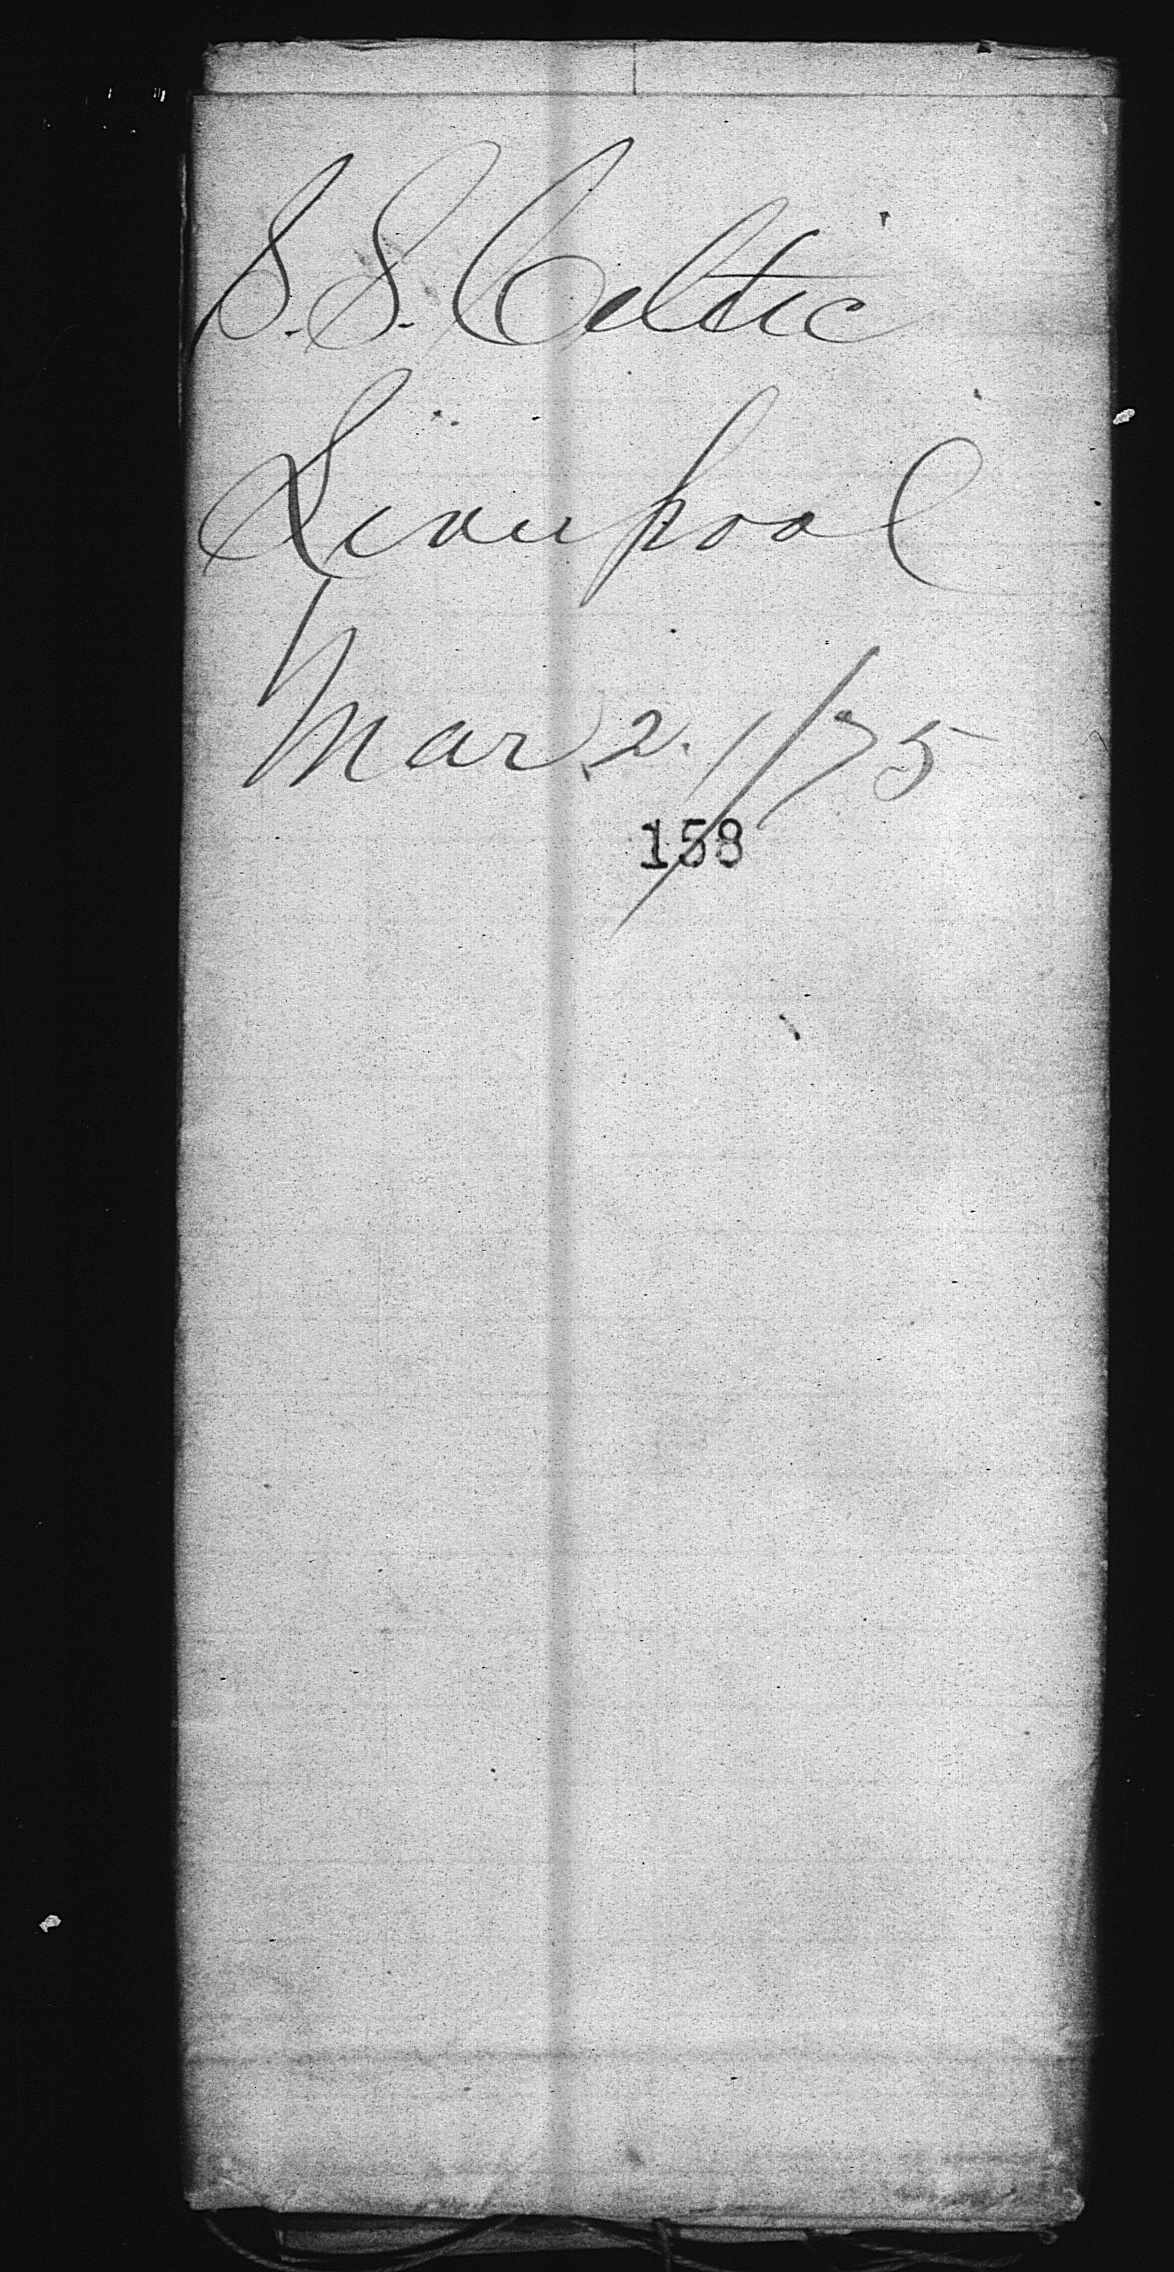 S. S. Celtic
Liverpool
Mar 2. 1/75
158